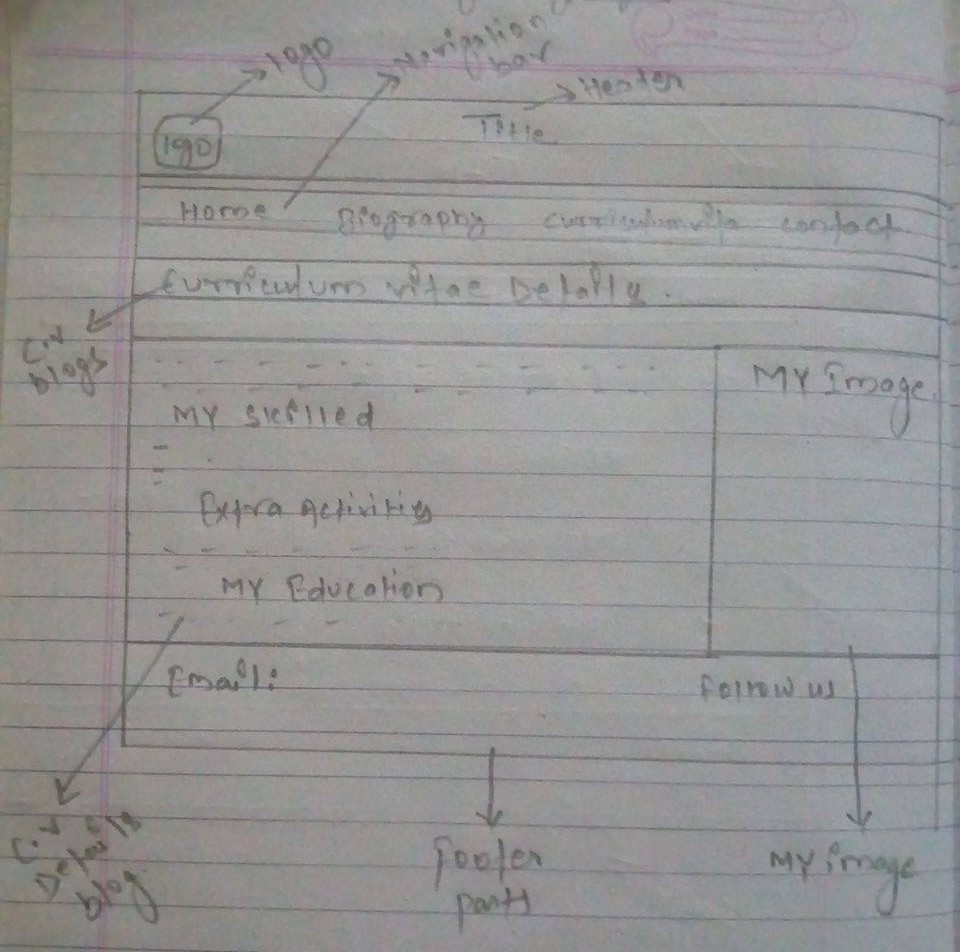 logo
Navigation
bar
Header
logo
Title
Home Biography curriculum vita contact
Curriculum vitae Details.
C.V
blogs
MY Image
MY Skilled
Extra Activities
MY Education
Email:
Follow us
C.V
Details
blog
Footer
parts
MY image